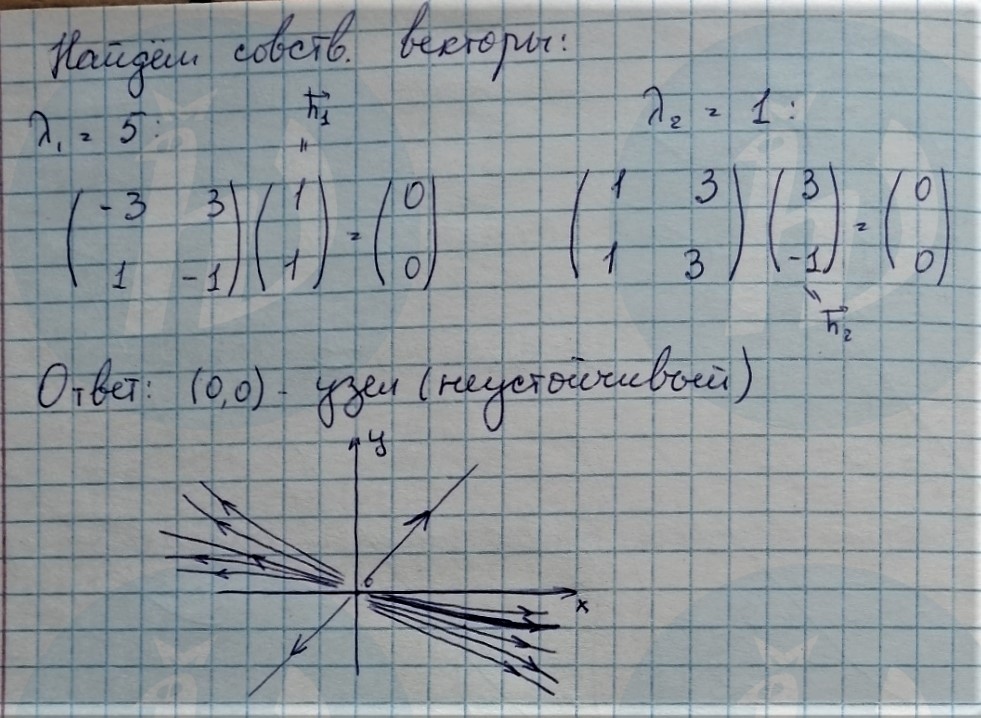 Найдём собств. векторы:
λ₁ = 5: h⃗₁ λ₂ = 1:
"
(-3 3) (1) = (0) (1 3) (3) = (0)
(1 -1) (1) (0) (1 3) (-1) (0)
" h⃗₂
Ответ: (0,0) - узел (неустойчивый)
y
x